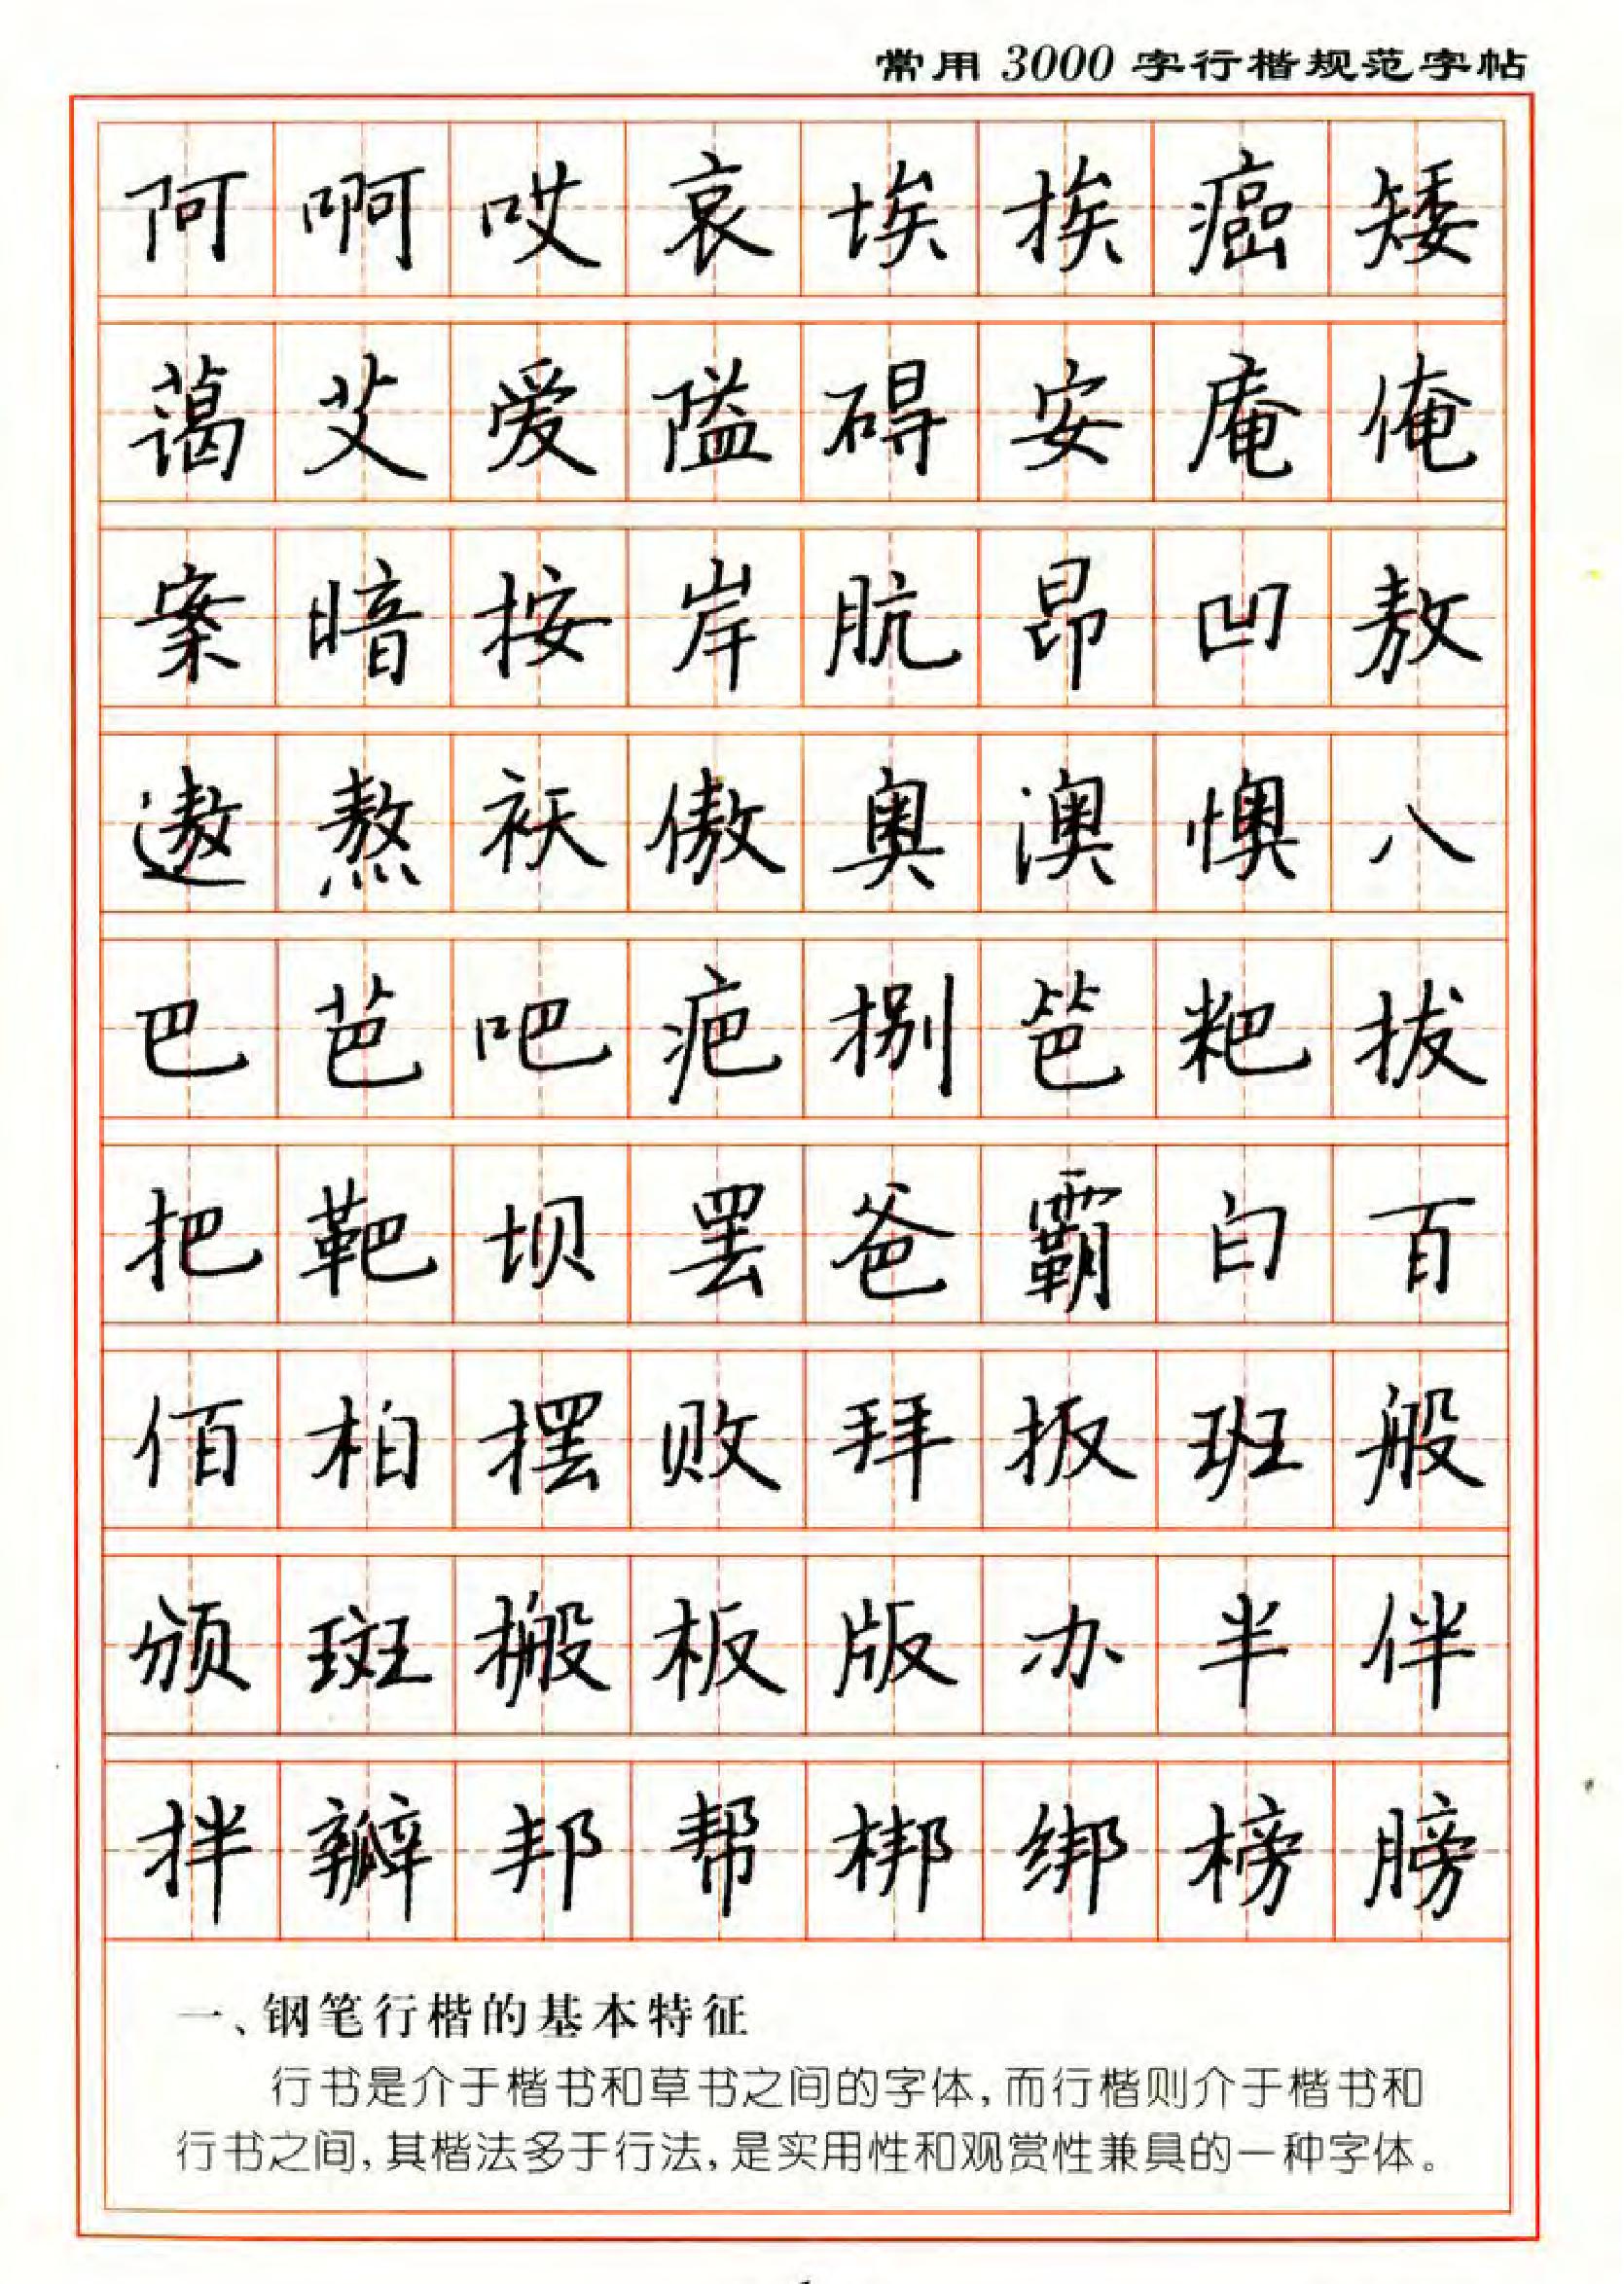 常用3000字行楷规范字帖
阿啊哎哀埃挨癌矮
蔼艾爱隘碍安庵俺
案暗按岸肮昂凹敖
遨熬袄傲奥澳懊八
巴芭吧疤捌笆粑拔
把靶坝罢爸霸白百
佰柏摆败拜扳班般
颁斑搬板版办半伴
拌瓣邦帮梆绑榜膀
一、钢笔行楷的基本特征
行书是介于楷书和草书之间的字体,而行楷则介于楷书和
行书之间,其楷法多于行法,是实用性和观赏性兼具的一种字体。